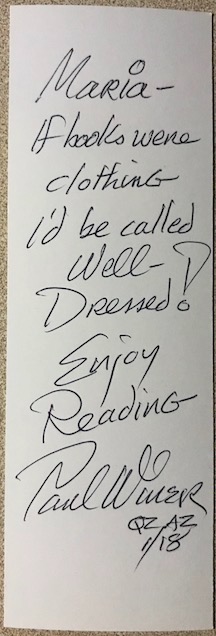 Maria-
If books were
clothing
I'd be called
Well-
Dressed!
Enjoy
Reading
Paul Winer
QZ AZ
1/18